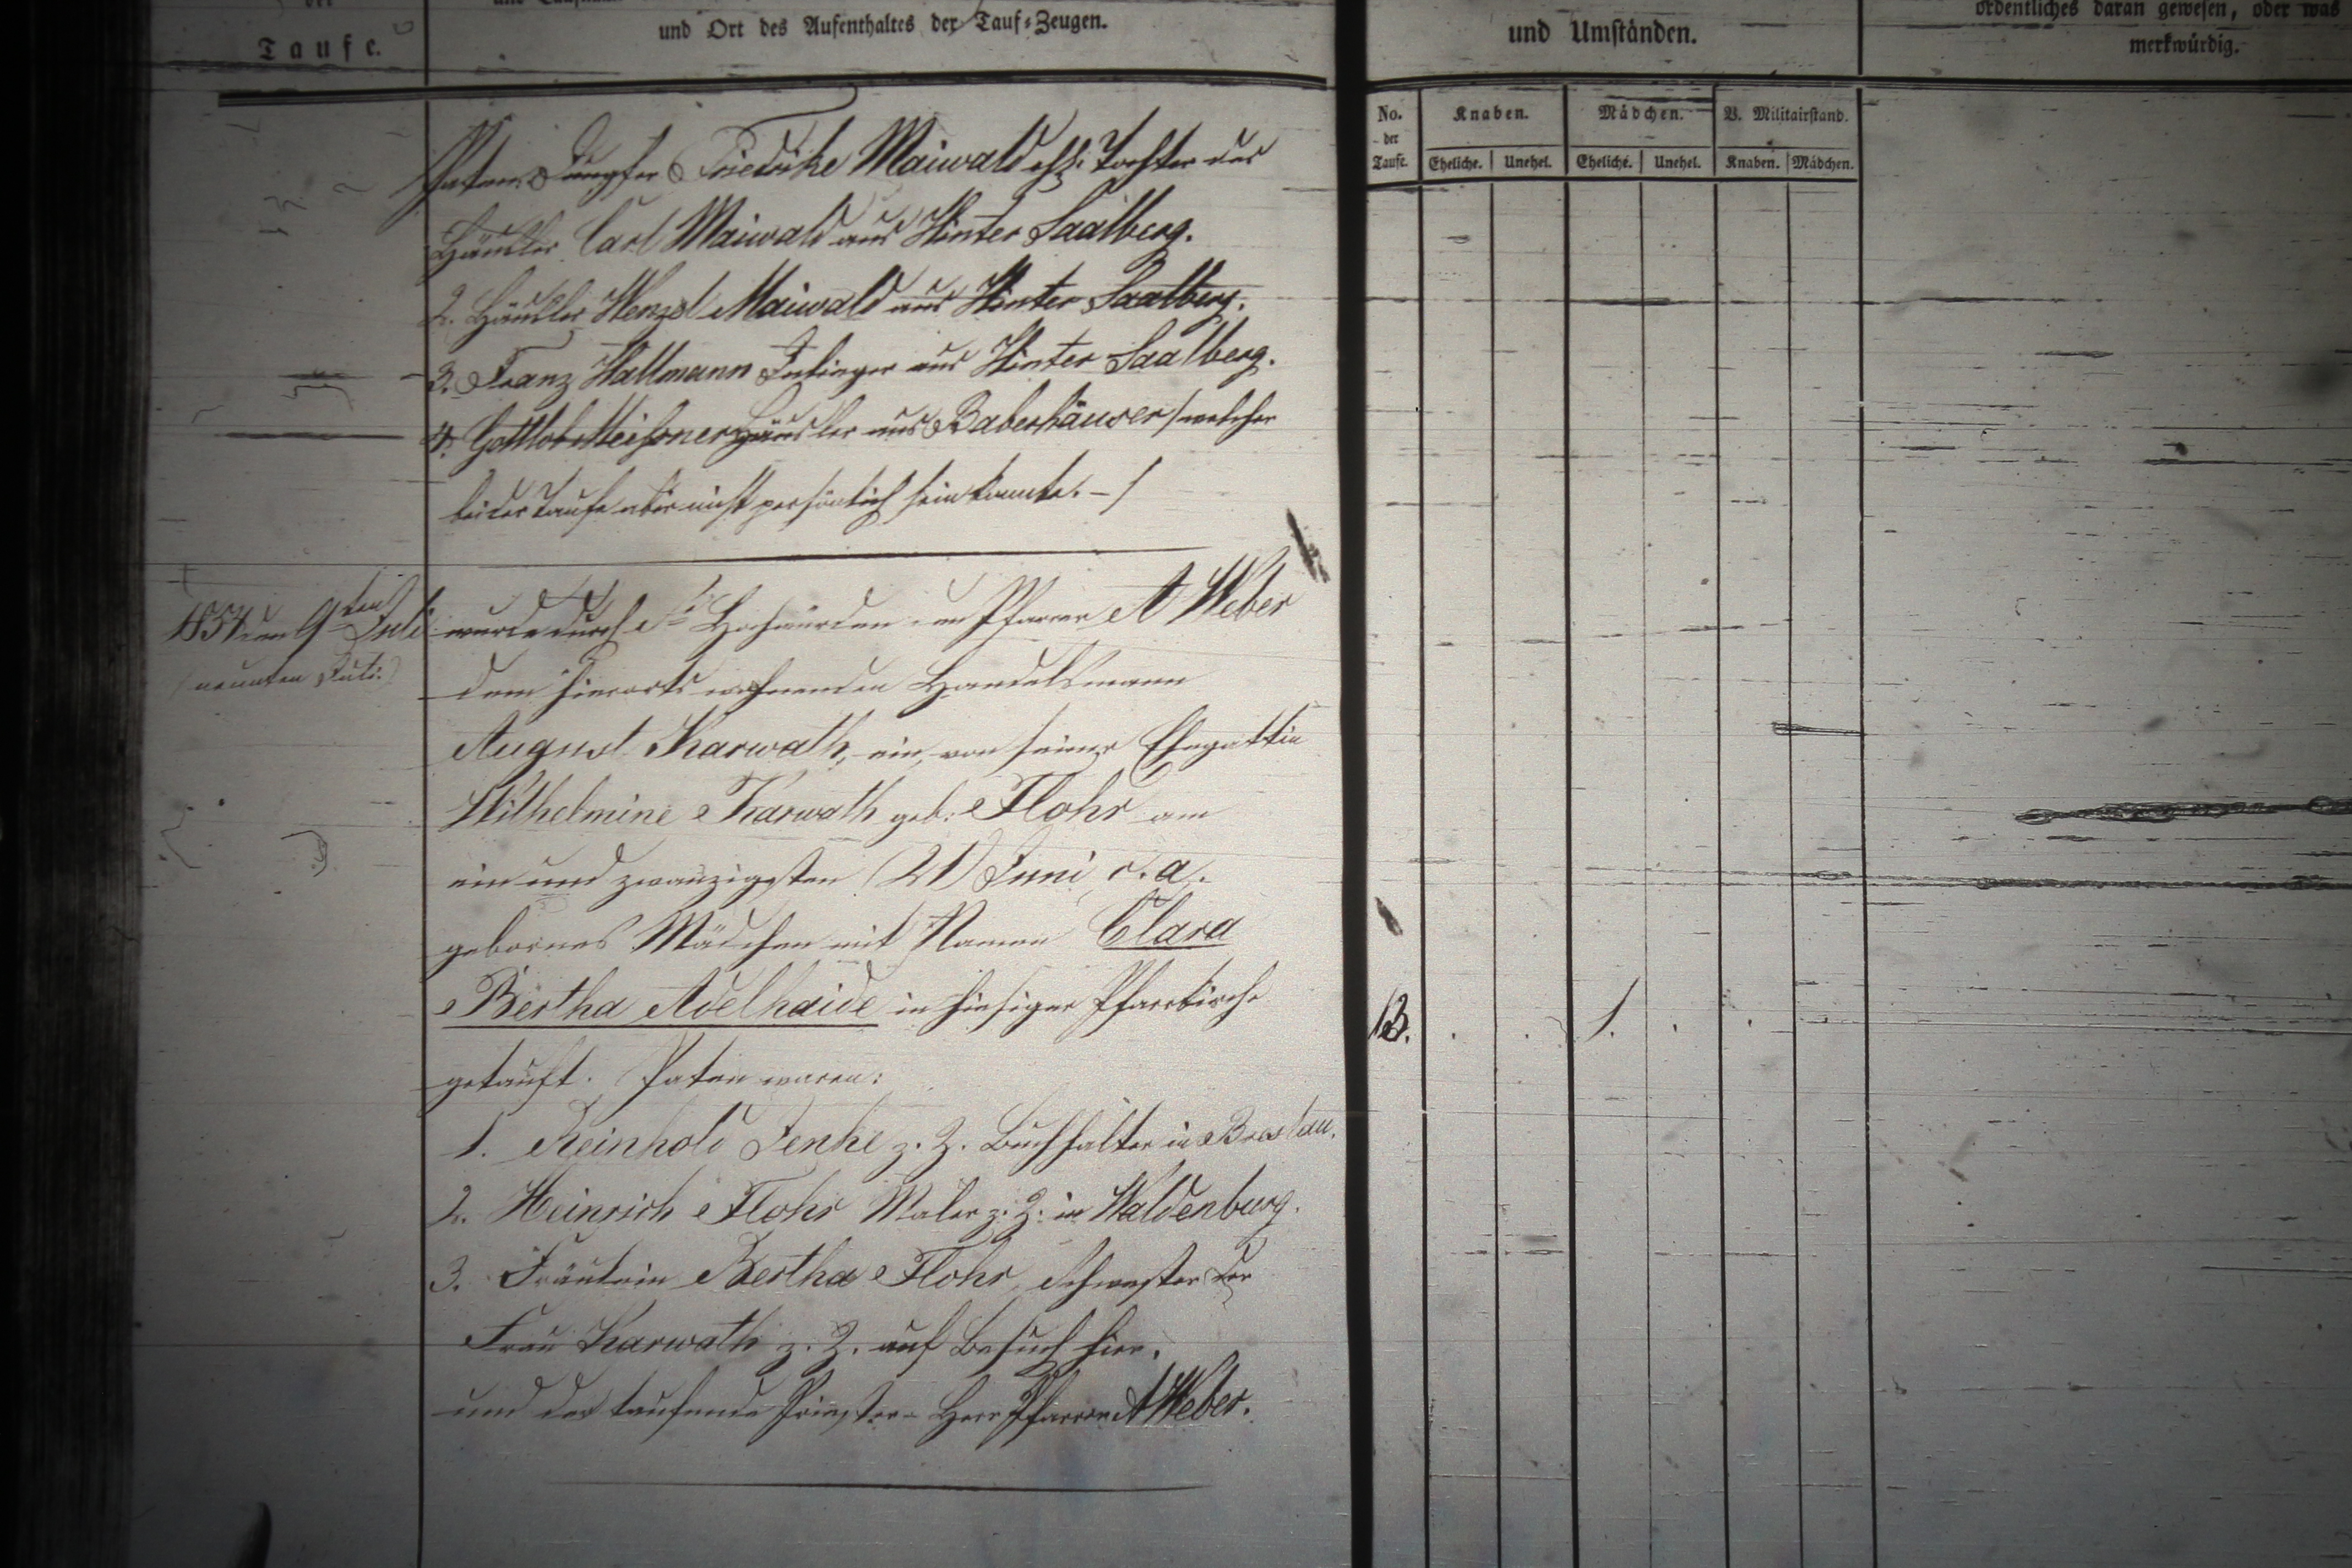 der
Taufe.
und Ort des Aufenthaltes der Tauf-Zeugen.
und Umständen.
ordentliches daran gewesen, oder was
merkwürdig.
No.
der
Taufe.
Knaben.
Mädchen.
V. Militairstand.
Eheliche.
Unehel.
Eheliche.
Unehel.
Knaben.
Mädchen.
Paten Jungfer Friedrike Maiwald ehl. Tochter des
Häusler Carl Maiwald aus Hinter Saalberg.
2. Häusler Wenzel Maiwald aus Hinter Saalberg.
3. Franz Hallmann Inlieger aus Hinter Saalberg.
4. Gottlob Meißner Häusler aus Baberhäuser /welcher
bei der Taufe aber nicht persönlich sein konnte. - /
den 9ten Juli
(neunten Juli.)
wurde durch Hochwürden den Pfarrer A Weber
dem hierorts wohnenden Handelsmann
August Karwath, ein, von seiner Ehegattin
Wilhelmine Karwath geb. Flohr am
ein und zwanzigsten (21) Juni c. a.
gebornes Mädchen mit Namen Clara
Bertha Adelhaide in hiesiger Pfarrkirche
getauft. Paten waren:
13. . . 1. . .
1. Reinhold Jenke z. Z. Buchhalter in Breslau.
2. Heinrich Flohr Maler z. Z. in Waldenburg.
3. Fräulein Bertha Flohr, Schwester der
Frau Karwath z. Z. auf Besuch hier.
und der taufende Priester Herr Pfarrer A Weber.